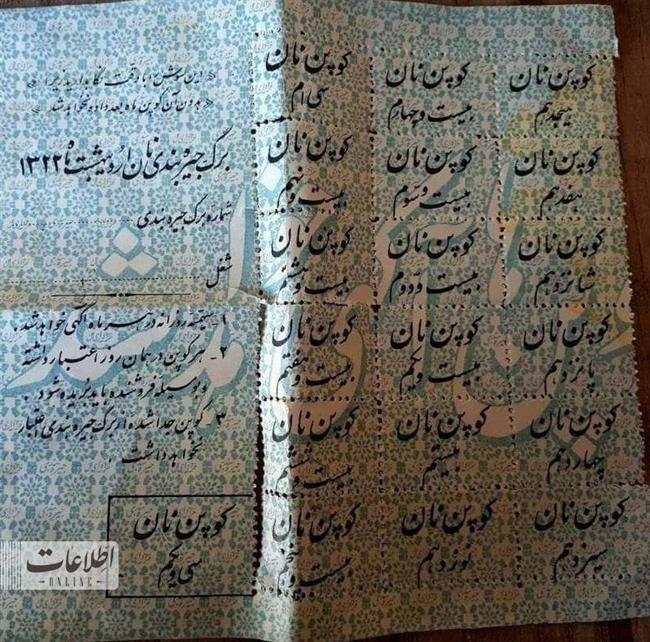 این سرش را با دقت نگاهدارید زیرا
بدون آن کوپن ماه بعد داده نخواهد شد
برگ جیره بندی نان اردیبهشت ماه ۱۳۲۲
شماره برگ جیره بندی
شغل
۱- سهمیه روزانه در هر ماه آگهی خواهد شد.
۲- هر کوپن در همان روز اعتبار داشته
و بوسیله فروشنده باید بریده شود.
۳- کوپن جدا شده از برگ جیره بندی اعتبار
نخواهد داشت.
کوپن نان
هیجدهم
کوپن نان
بیست و چهارم
کوپن نان
سی ام
کوپن نان
هفدهم
کوپن نان
بیست و سوم
کوپن نان
بیست و نهم
کوپن نان
شانزدهم
کوپن نان
بیست و دوم
کوپن نان
بیست و هشتم
کوپن نان
پانزدهم
کوپن نان
بیست و یکم
کوپن نان
بیست و هفتم
کوپن نان
چهاردهم
کوپن نان
بیستم
کوپن نان
بیست و ششم
کوپن نان
سیزدهم
کوپن نان
نوزدهم
کوپن نان
بیست و پنجم
کوپن نان
سی و یکم
اطلاعات
ONLINE